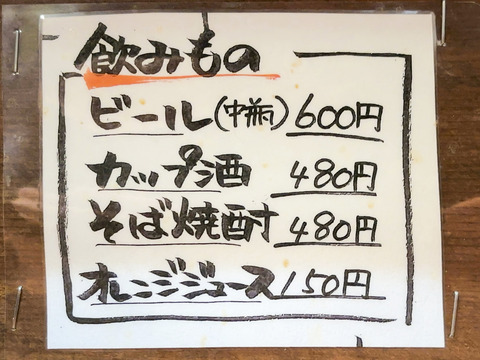 飲みもの
ビール(中瓶) 600円
カップ酒 480円
そば焼酎 480円
オレンジジュース 150円